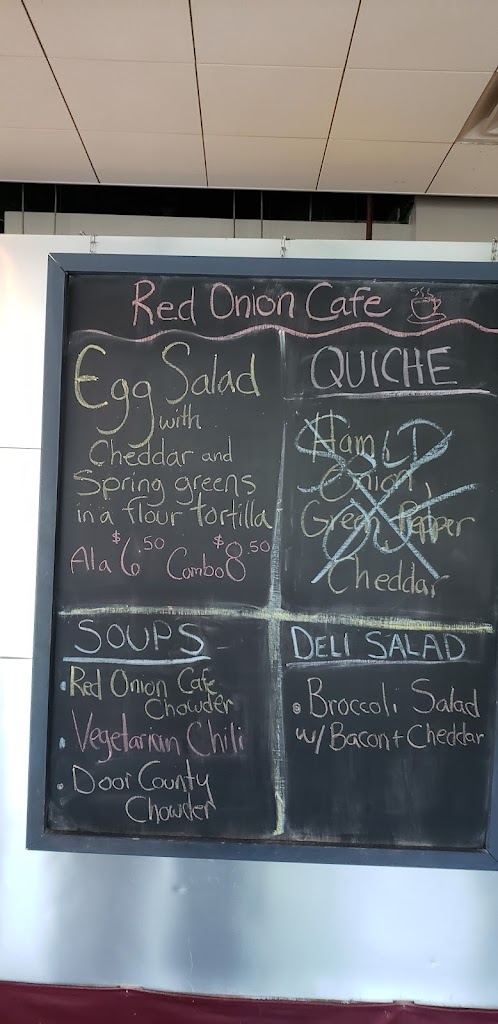 Red Onion Cafe
Egg Salad
with
Cheddar and
Spring greens
in a flour tortilla
Ala $6.50 Combo $8.50
QUICHE
Ham,
Onion,
Green Pepper
Cheddar
SOLD
OUT
SOUPS
• Red Onion Cafe
Chowder
• Vegetarian Chili
• Door County
Chowder
DELI SALAD
• Broccoli Salad
w/ Bacon + Cheddar